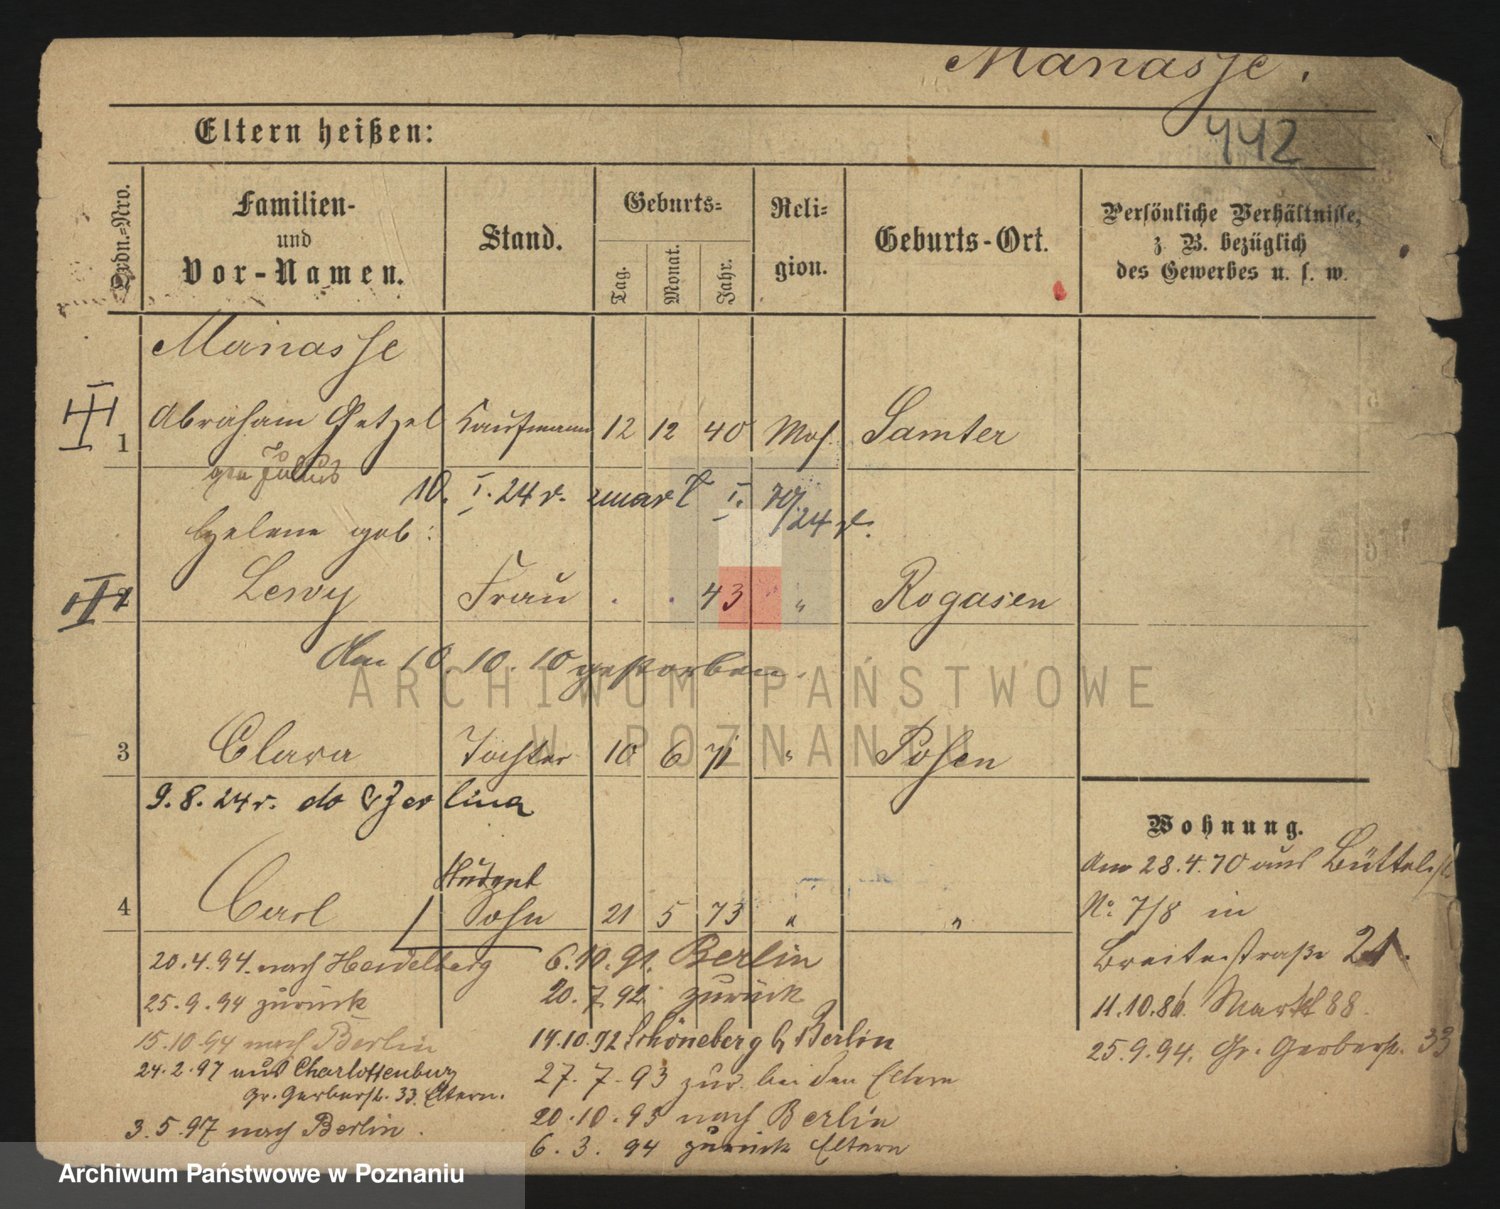 Manasse.
442
Eltern heißen:
Ordn.-Nro.
Familien-
und
Vor-Namen.
Stand.
Geburts-
Tag.
Monat.
Jahr.
Reli-
gion.
Geburts-Ort.
Persönliche Verhältnisse,
z. B. bezüglich
des Gewerbes u. s. w.
Manasse
III
1 Abraham Getzel Kaufmann 12 12 40 Mos. Samter
gen Julius
10. I. 24 r. zmarł I. 24 r.
Helene geb:
Lewy Frau . . 43 " Rogasen
2
Am 10. 10. 10 gestorben.
3 Clara Tochter 10 6 71 " Posen
9. 8. 24 r. do
Student
4 Carl Sohn 21 5 73 " "
20.4.94. nach Heidelberg
25.9.94 zurück
15.10.94 nach Berlin
24.2.97 aus Charlottenburg
Gr. Gerberst. 33. Eltern.
3.5.97 nach Berlin.
6.10.91. Berlin
20.7.92 zurück
14.10.92 Schöneberg b Berlin
27.7.93 zur. bei den Eltern
20.10.93 nach Berlin
6.3.94 zurück Eltern
Wohnung.
Am 28.4.70 aus Büttelst.
No. 7/8 in
Breitestraße 21.
11.10.86. Markt 88.
25.9.94. Gr. Gerberst. 33
ARCHIWUM PAŃSTWOWE
W POZNANIU
Archiwum Państwowe w Poznaniu